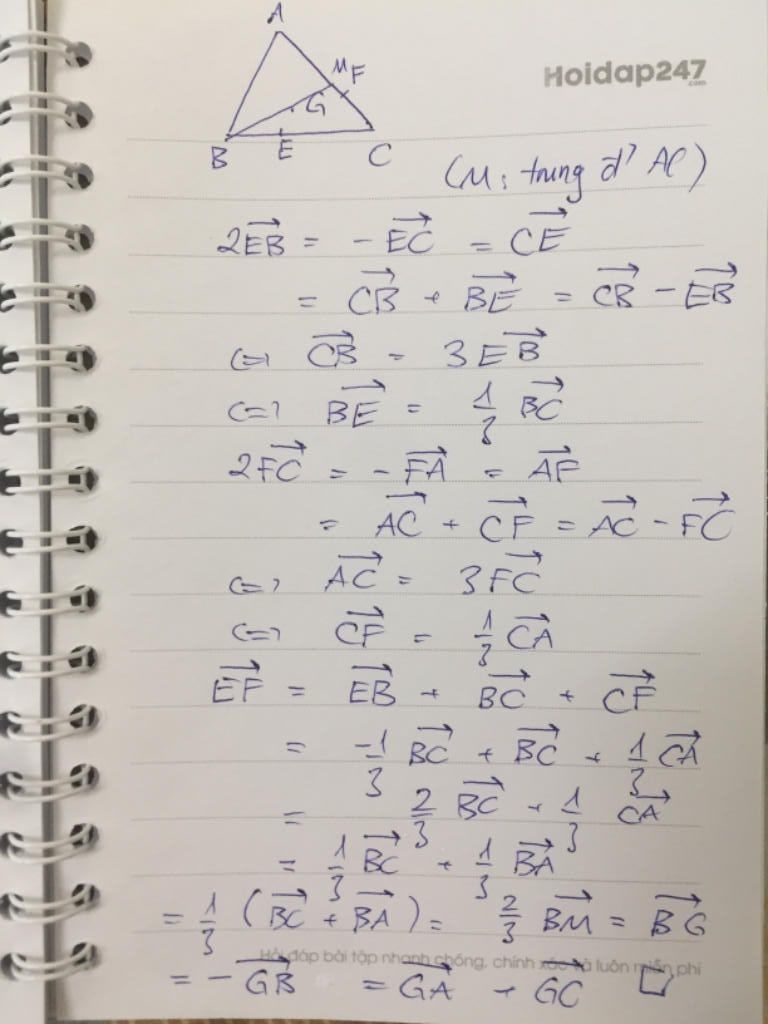 A
M F
G
B E C
Hoidap247
.com
(M: trung đ' AC)
2EB⃗ = -EC⃗ = CE⃗
= CB⃗ + BE⃗ = CB⃗ - EB⃗
<=> CB⃗ = 3EB⃗
<=> BE⃗ = 1/3 BC⃗
2FC⃗ = -FA⃗ = AF⃗
= AC⃗ + CF⃗ = AC⃗ - FC⃗
<=> AC⃗ = 3FC⃗
<=> CF⃗ = 1/3 CA⃗
EF⃗ = EB⃗ + BC⃗ + CF⃗
= -1/3 BC⃗ + BC⃗ + 1/3 CA⃗
= 2/3 BC⃗ + 1/3 CA⃗
= 1/3 BC⃗ + 1/3 BA⃗
= 1/3 (BC⃗ + BA⃗) = 2/3 BM⃗ = BG⃗
Hỏi đáp bài tập nhanh chóng, chính xác và luôn miễn phí
= -GB⃗ = GA⃗ + GC⃗ □